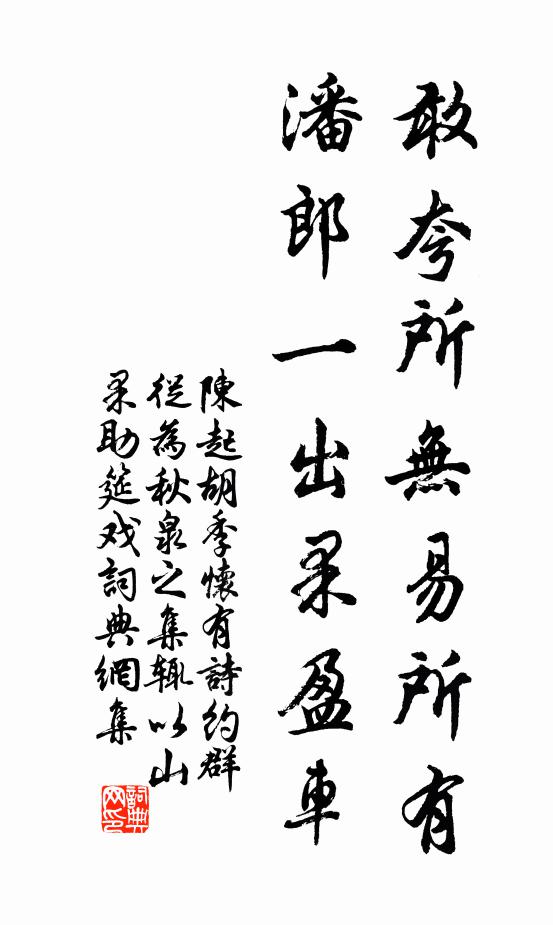 敢夸所無易所有
潘郎一出果盈車
陳起胡季懷有詩約群
從為秋泉之集輒以山
果助筵戏詞典網集
詞典
网印